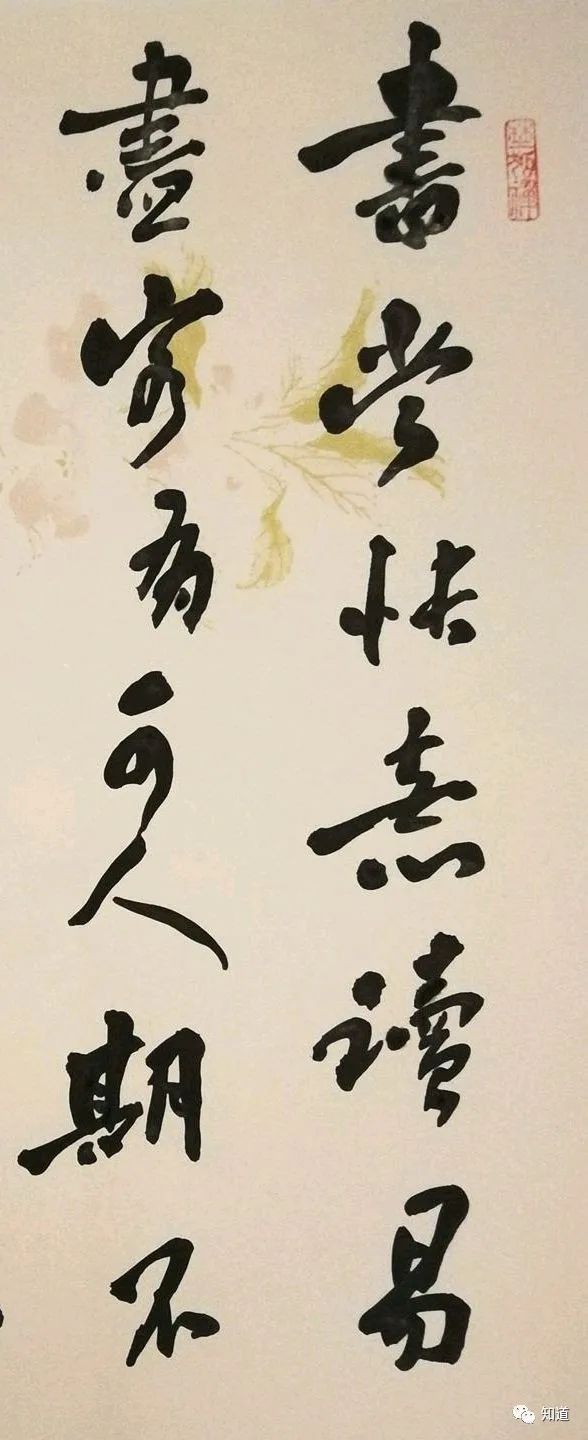 書當快意讀易
盡客有可人期不
知道